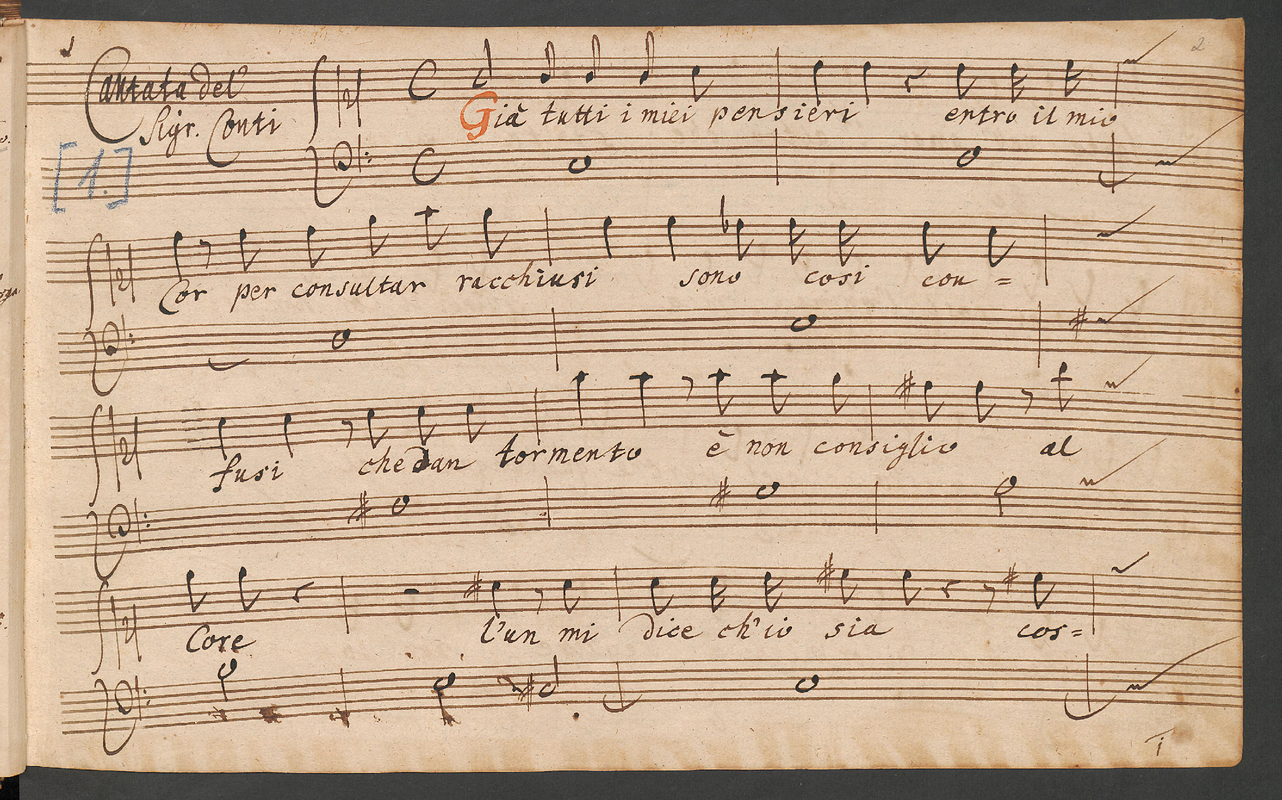 2
Cantata del
Sigr. Conti
[1.]
Già tutti i miei pensieri entro il mio
Cor per consultar racchiusi sono cosi con=
fusi che dan tormento è non consiglio al
Core l'un mi dice ch'io sia cos=